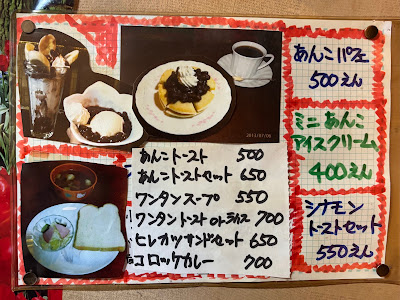 2013/07/06
あんこパフェ
500えん
ミニあんこ
アイスクリーム
400えん
シナモン
トーストセット
550えん
あんこトースト 500
あんこトーストセット 650
ワンタンスープ 550
ワンタントースト orライス 700
ヒレカツサンドセット 650
コロッケカレー 700